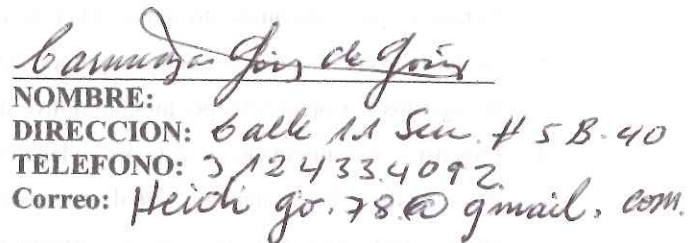 Carmenza Góez de Góez
NOMBRE:
DIRECCION: Calle 11 Sur # 5B-40
TELEFONO: 312 433.4092.
Correo: Heidi go.78@gmail.com.